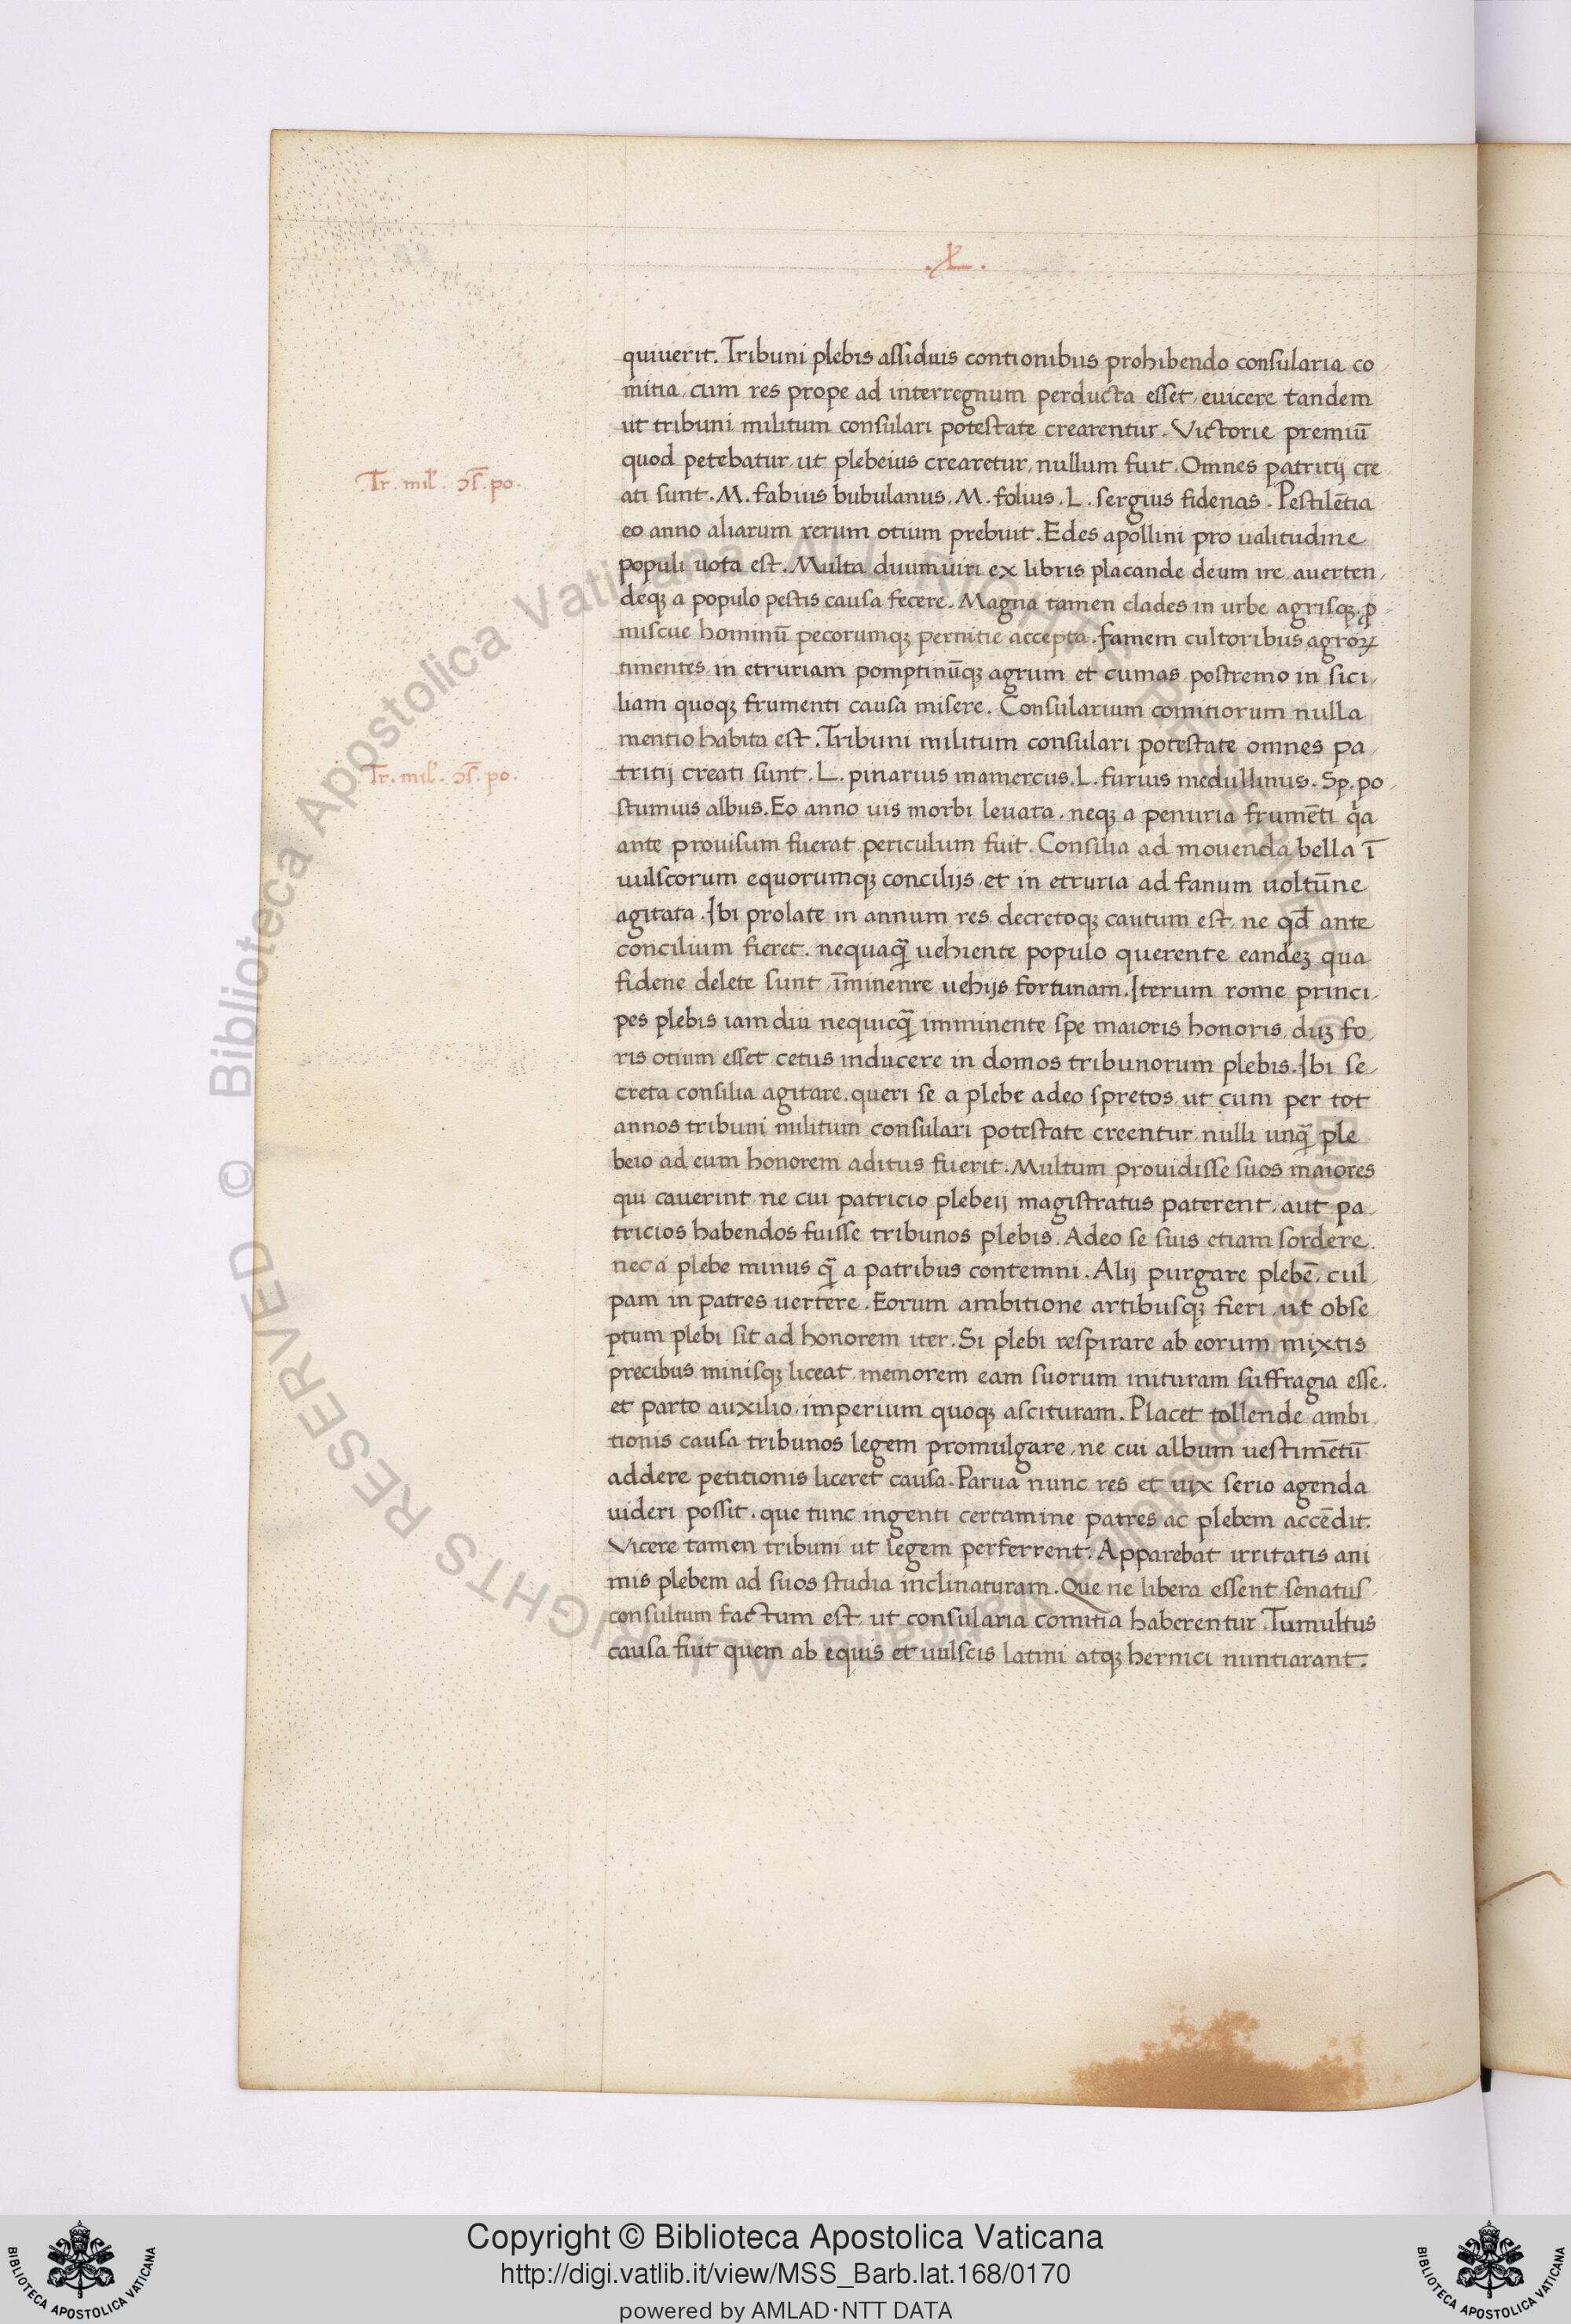 .X.
quiuerit. Tribuni plebis assiduis contionibus prohibendo consularia co
mitia, cum res prope ad interregnum perducta esset, euicere tandem
ut tribuni militum consulari potestate crearentur. Victorie premiū
quod petebatur, ut plebeius crearetur, nullum fuit. Omnes patritij cre
Tr. mil. ↄs. po.
ati sunt. M. fabius bubulanus. M. folius. L. sergius fidenas. Pestilētia
eo anno aliarum rerum otium prebuit. Edes apollini pro ualitudine
populi uota est. Multa duumuiri ex libris placande deum ire, auerten
deqꝫ a populo pestis causa fecere. Magna tamen clades in urbe agrisqꝫ, ꝓ
miscue hominū pecorumqꝫ pernitie accepta. famem cultoribus agroꝝ
timentes, in etruriam pomptinūqꝫ agrum et cumas, postremo in sici
liam quoqꝫ frumenti causa misere. Consularium comitiorum nulla
mentio habita est. Tribuni militum consulari potestate omnes pa
Tr. mil. ↄs. po.
tritij creati sunt. L. pinarius mamercus. L. furius medullinus. Sp. po
stumius albus. Eo anno uis morbi leuata. neqꝫ a penuria frumēti qͥa
ante prouisum fuerat, periculum fuit. Consilia ad mouenda bella ī
uulscorum equorumqꝫ concilijs, et in etruria ad fanum uoltūne
agitata. Ibi prolate in annum res, decretoqꝫ cautum est, ne qd̄ ante
concilium fieret. nequaq̄ uehiente populo querente eandeꝫ qua
fidene delete sunt, īminenre uehijs fortunam. Iterum rome princi
pes plebis iam diu nequicq̄ imminente spe maioris honoris, duꝫ fo
ris otium esset cetus inducere in domos tribunorum plebis. Ibi se
creta consilia agitare. queri se a plebe adeo spretos, ut cum per tot
annos tribuni militum consulari potestate creentur, nulli unq̄ ple
beio ad eum honorem aditus fuerit. Multum prouidisse suos maiores
qui cauerint, ne cui patricio plebeij magistratus paterent, aut pa
tricios habendos fuisse tribunos plebis. Adeo se suis etiam sordere.
nec a plebe minus q̄ a patribus contemni. Alij purgare plebē, cul
pam in patres uertere. Eorum ambitione artibusqꝫ fieri, ut obse
ptum plebi sit ad honorem iter. Si plebi respirare ab eorum mixtis
precibus minisqꝫ liceat, memorem eam suorum inituram suffragia esse.
et parto auxilio, imperium quoqꝫ ascituram. Placet tollende ambi
tionis causa tribunos legem promulgare, ne cui album uestimētū
addere petitionis liceret causa. Parua nunc res et uix serio agenda
uideri possit. que tunc ingenti certamine patres ac plebem accēdit.
Vicere tamen tribuni ut legem perferrent. Apparebat irritatis ani
mis plebem ad suos studia inclinaturam. Que ne libera essent senatus
consultum factum est, ut consularia comitia haberentur. Tumultus
causa fuit quem ab equis et uulscis latini atqꝫ hernici nuntiarant.
© Biblioteca Apostolica Vaticana ALL RIGHTS RESERVED
Copyright © Biblioteca Apostolica Vaticana
http://digi.vatlib.it/view/MSS_Barb.lat.168/0170
powered by AMLAD·NTT DATA
BIBLIOTECA APOSTOLICA VATICANA
BIBLIOTECA APOSTOLICA VATICANA